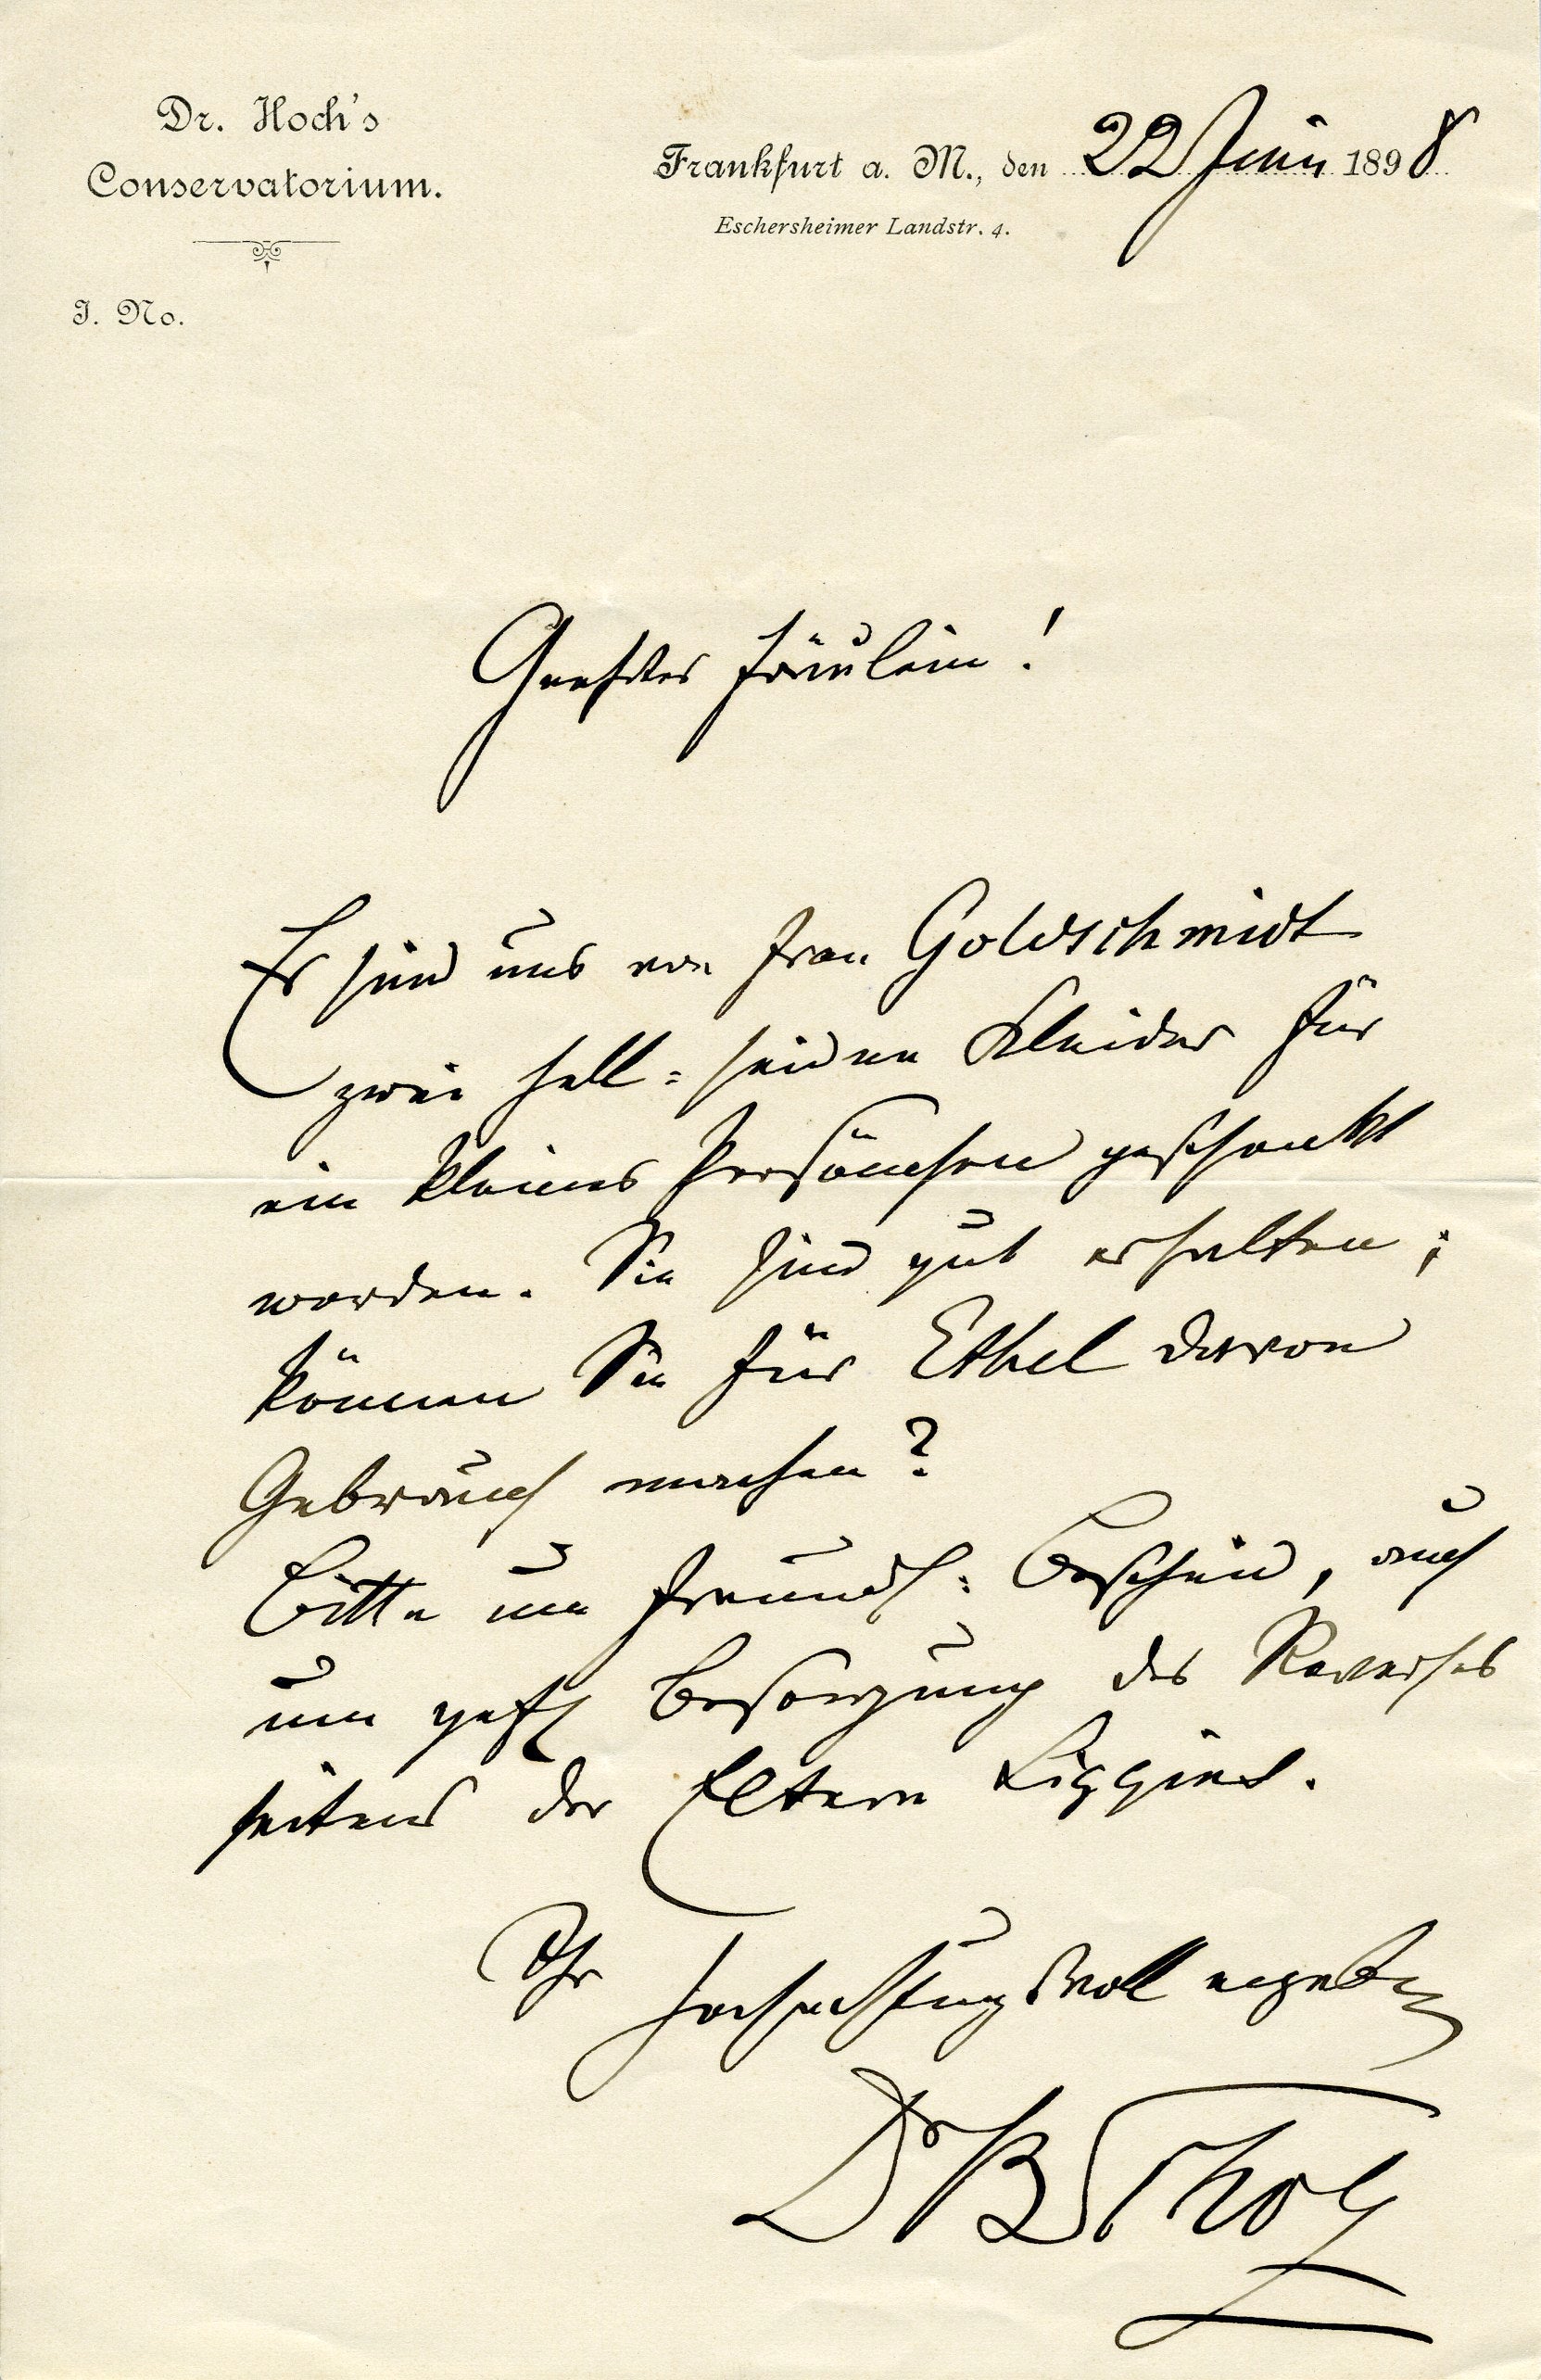 Dr. Hoch's
Conservatorium.
Frankfurt a. M., den 22 Juni 1898
Eschersheimer Landstr. 4.
J. No.
Geehrtes Fräulein!
Es sind uns von Frau Goldschmidt
zwei hell-seidene Kleider für
ein kleines Persönchen geschenkt
worden. Sie sind gut erhalten;
können Sie für Ethel davon
Gebrauch machen?
Bitte um freundl: Bescheid, auch
um gefl Besorgung des Reverses
seitens der Eltern
Ihr hochachtungsvoll ergeb
Dr B Scholz